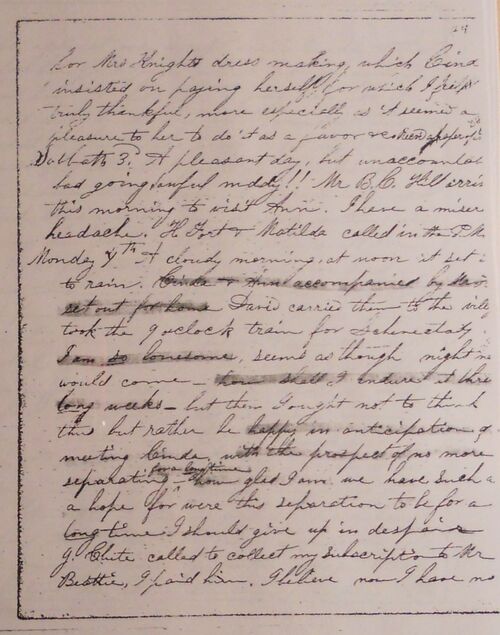 24
for Mrs Knights dress making, which Cind
insisted on paying herself, for which I feel
truly thankful, more especially as it seemed a
pleasure to her to do it as a favor
Sabbath 3d. A pleasant day, but unaccounta
bad going, awful muddy!! Mr B. C. Hill arriv
this morning to visit Ann. I have a miser
headache. Fort & Matilda called in the P.M.
Monday 4th A cloudy morning, at noon it set i
to rain. Cinda & Ann accompanied by Mr
set out for home David carried them to the vill
took the 9 oclock train for Schenectady.
I am so lonesome, seems as though night ne
would come – how shall I endure it three
long weeks – but then I ought not to think
thus but rather be happy in anticipation of
meeting Cinda, with the prospect of no more
separating for a long time – how glad I am we have such a
a hope for were this separation to be for a
long time I should give up in despair
G. Chute called to collect my subscription to Mr
Beattie, I paid him. I believe now I have no